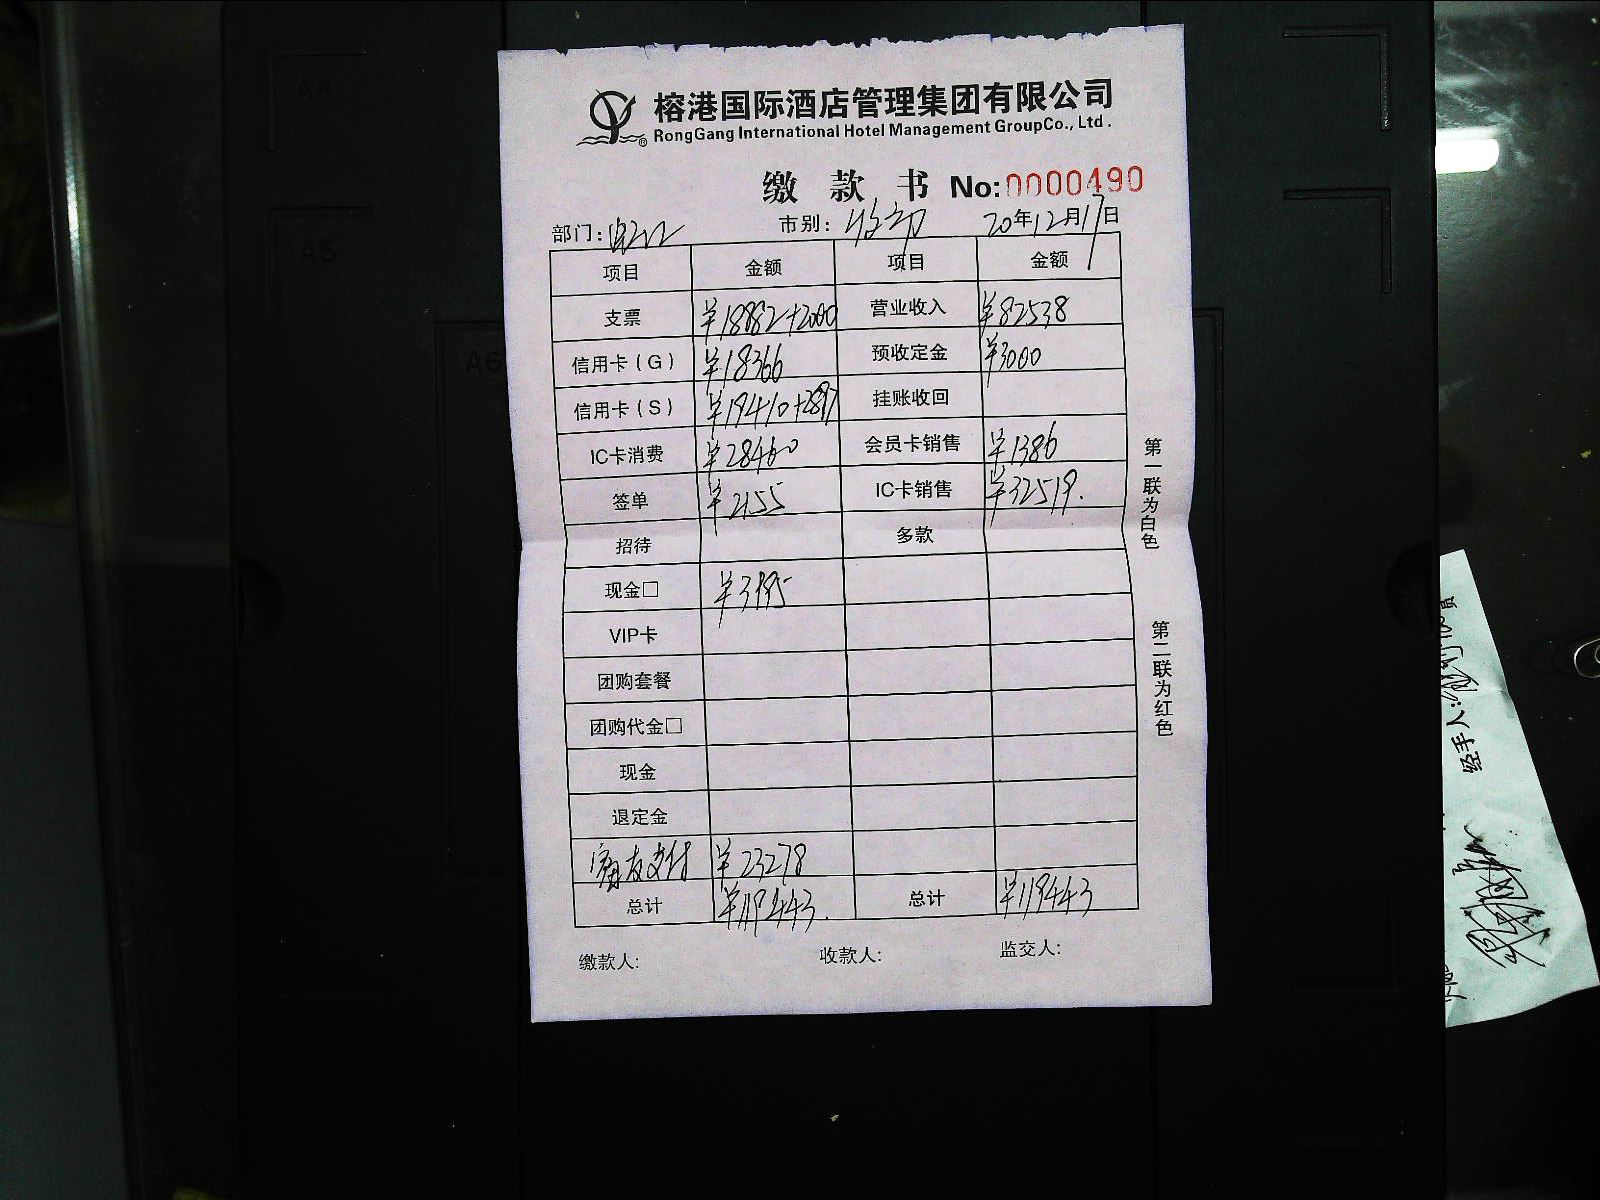 榕港国际酒店管理集团有限公司
RongGang International Hotel Management GroupCo., Ltd.
缴款书 No:0000490
部门: 市别: 20年12月17日
项目 金额 项目 金额
支票 ¥18882+2000 营业收入 ¥82538
信用卡（G） ¥18366 预收定金 ¥3000
信用卡（S） ¥19410+2897 挂账收回
IC卡消费 ¥28460 会员卡销售 ¥1386
签单 ¥2155 IC卡销售 ¥32519.
招待 多款
现金□ ¥3995
VIP卡
团购套餐
团购代金□
现金
退定金
支付 ¥23278
总计 ¥119443. 总计 ¥119443
缴款人: 收款人: 监交人:
第一联为白色
第二联为红色
A4
A5
A6
经手人: